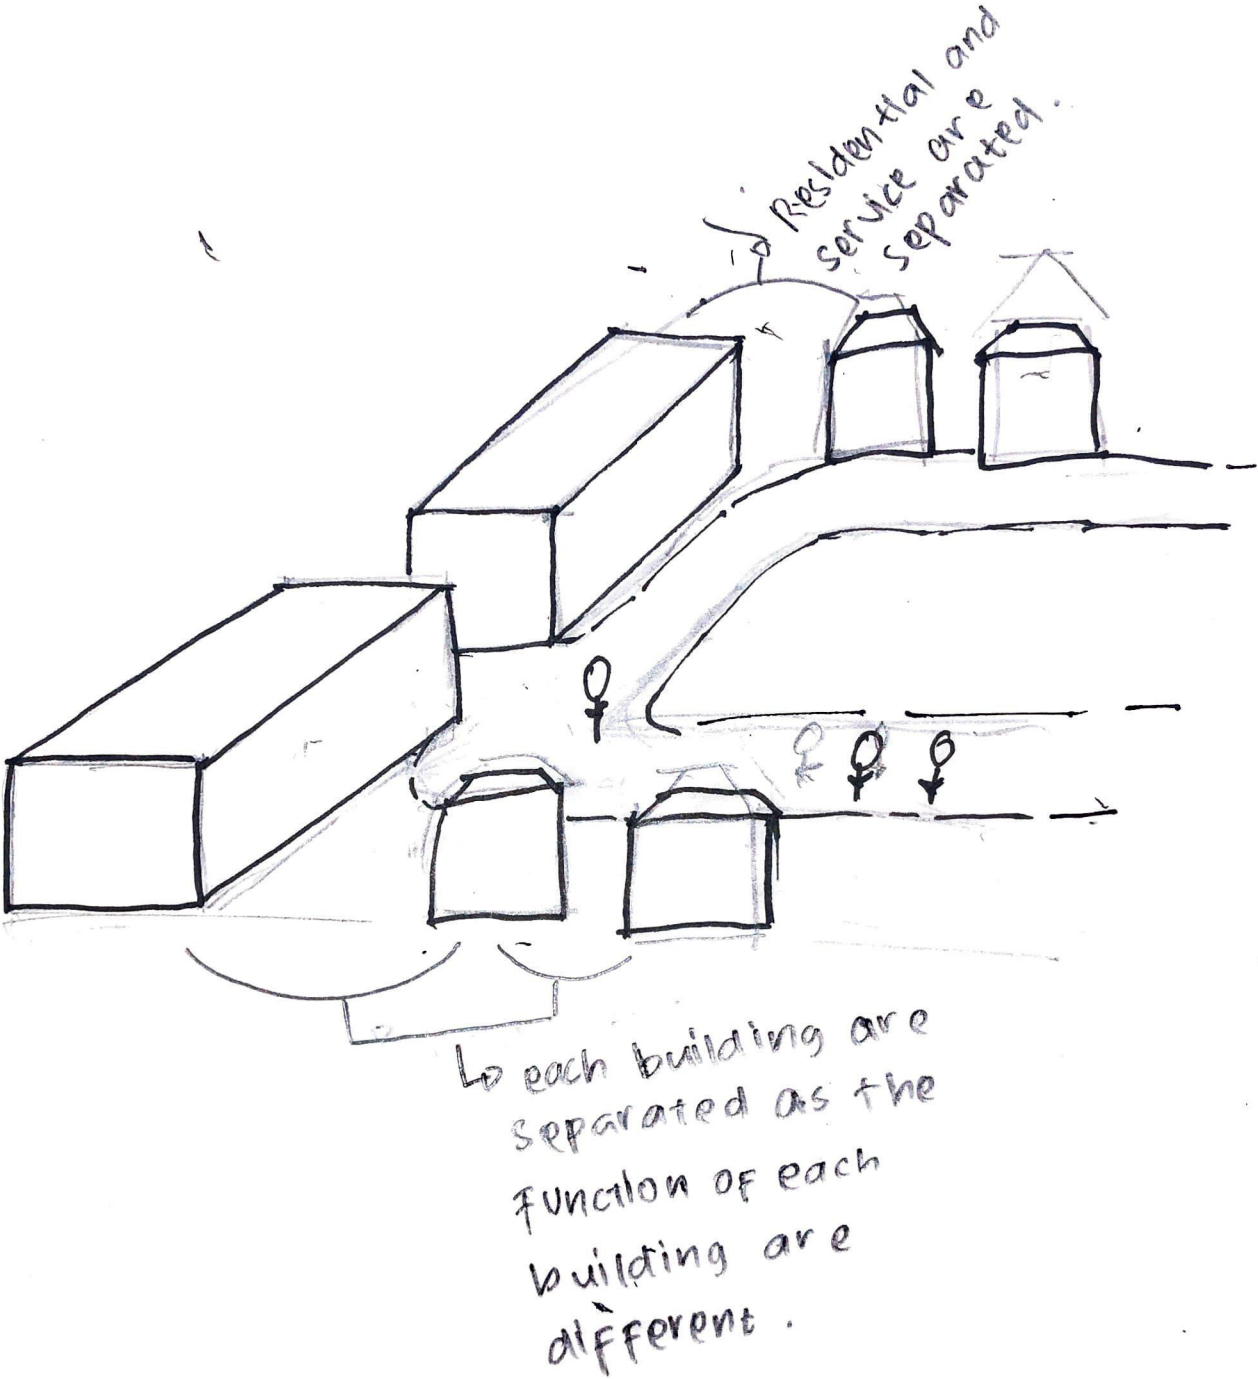 Residential and
service are
separated.
each building are
separated as the
function of each
building are
different.